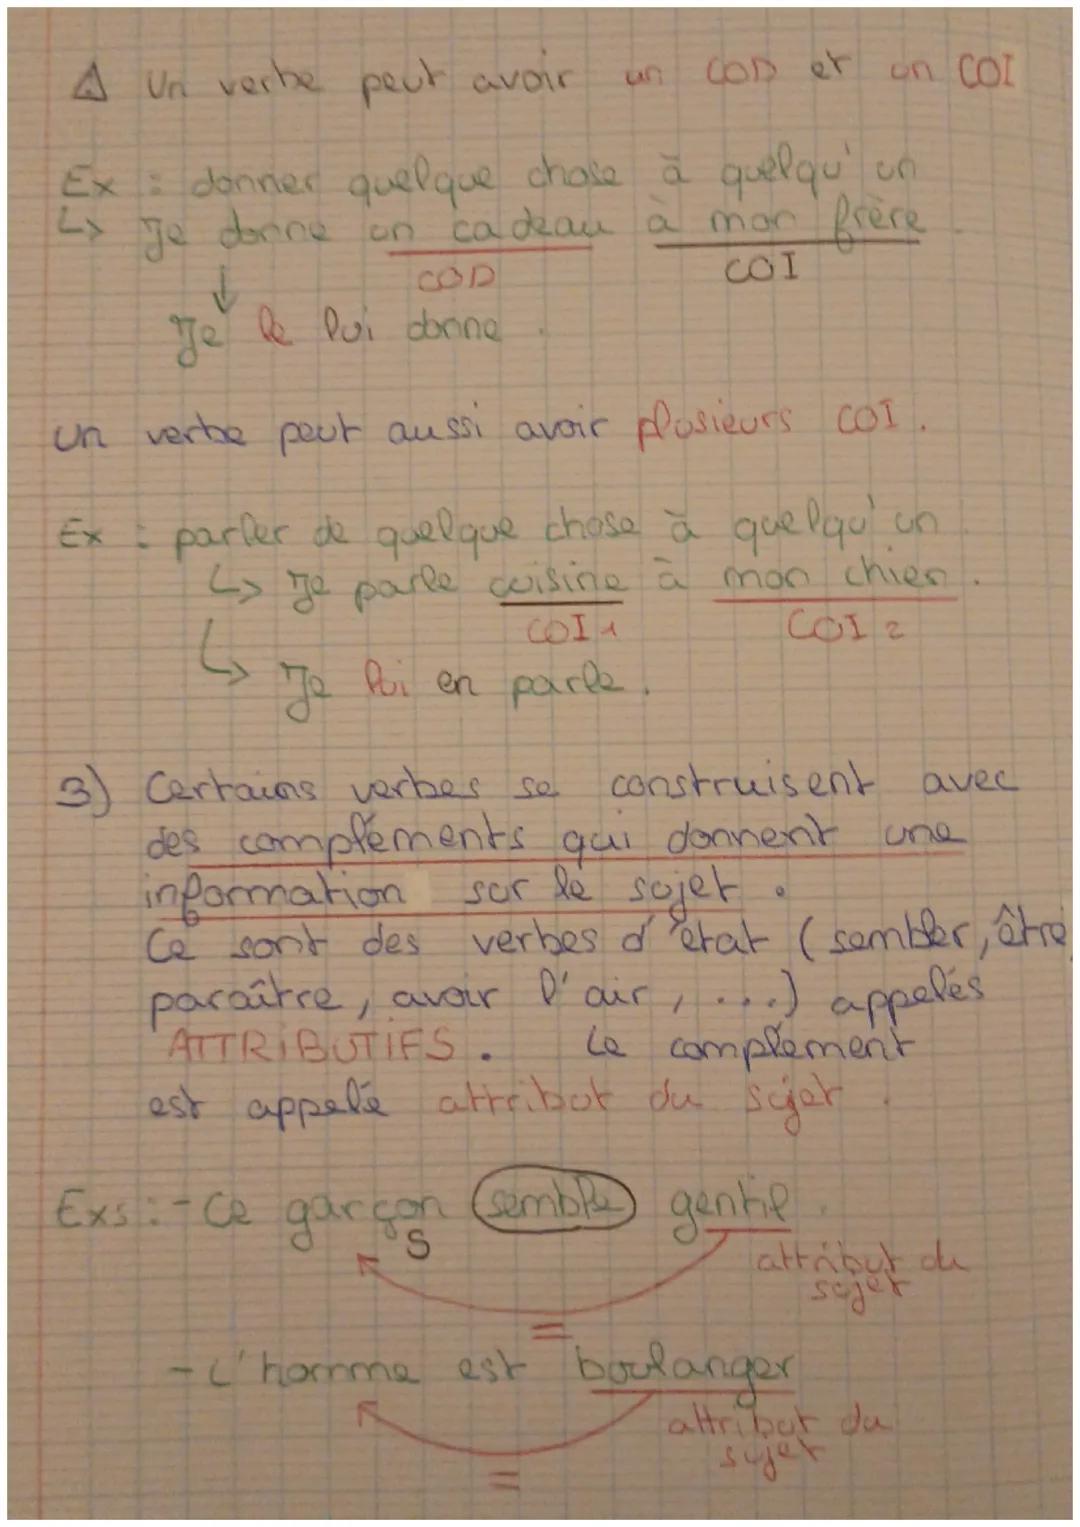 ⚠ Un verbe peut avoir un COD et un COI
Ex : donner quelque chose à quelqu'un
↳ Je donne un cadeau à mon frère.
COD COI
↓
Je le lui donne.
un verbe peut aussi avoir plusieurs COI.
Ex : parler de quelque chose à quelqu'un.
↳ Je parle cuisine à mon chien.
COI 1 COI 2
↳ Je lui en parle.
3) Certains verbes se construisent avec
des compléments qui donnent une
information sur le sujet.
Ce sont des verbes d'état (sembler, être,
paraître, avoir l'air, ...) appelés
ATTRIBUTIFS. Le complément
est appelé attribut du sujet.
Exs : - Ce garçon semble gentil.
S
attribut du
sujet
=
- L'homme est boulanger
attribut du
sujet
=